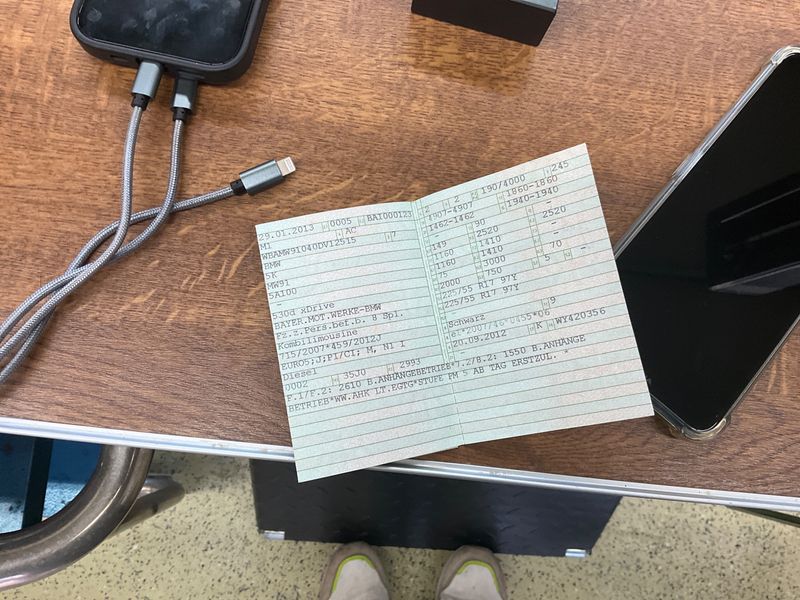 29.01.2013 0005 BAI000123
M1 AC
WBAMW91040DV12515 7
BMW
5K
MW91
5A100
-
530d xDrive
BAYER.MOT.WERKE-BMW
Fz.z.Pers.bef.b. 8 Spl.
Kombilimousine
715/2007*459/2012J
EURO5;J;PI/CI; M, N1 I
Diesel
0002 35J0 2993
F.1/F.2: 2610 B.ANHÄNGEBETRIEB*7.2/8.2: 1550 B.ANHÄNGE
BETRIEB*WW.AHK LT.EGTG*STUFE PM 5 AB TAG ERSTZUL. *
2 2 190/4000 245
4907-4907 1860-1860
1462-1462 1940-1940
- 90 -
149 2520 2520
1160 1410 -
1160 1410 -
75 3000 70 -
2000 750 5 -
225/55 R17 97Y
225/55 R17 97Y
-
Schwarz 9
e1*2007/46*0455*06
20.09.2012 K WY420356